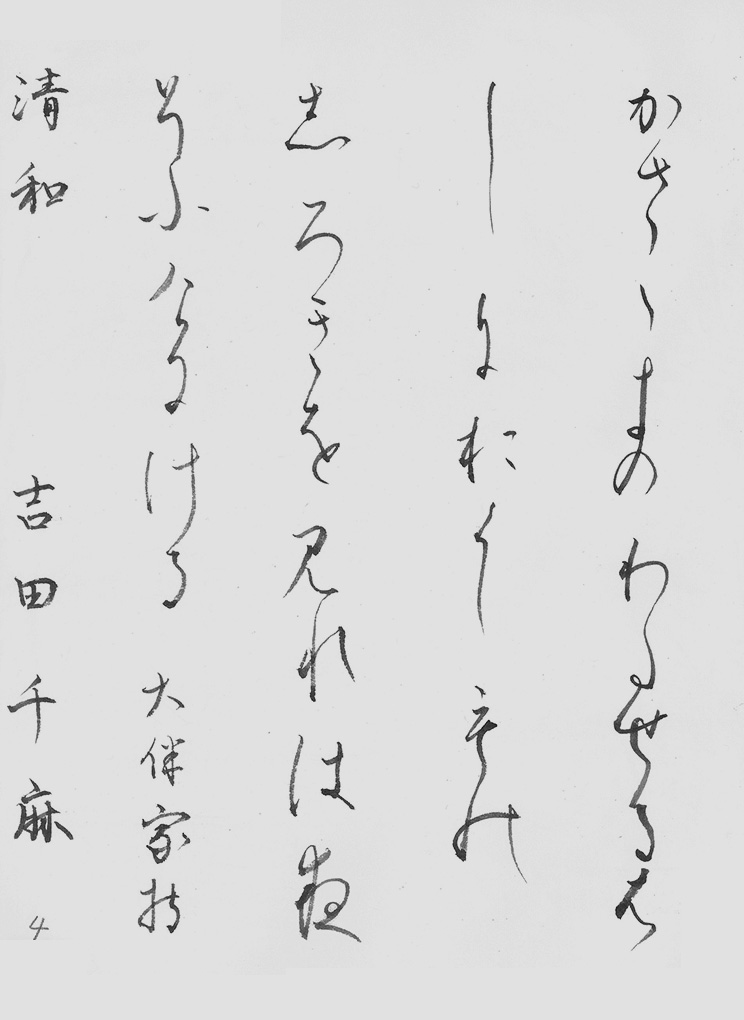 かさゝきのわたせるは
しにおくしもの
しろきを見れは夜
そふけにける 大伴家持
清和 吉田千麻
4